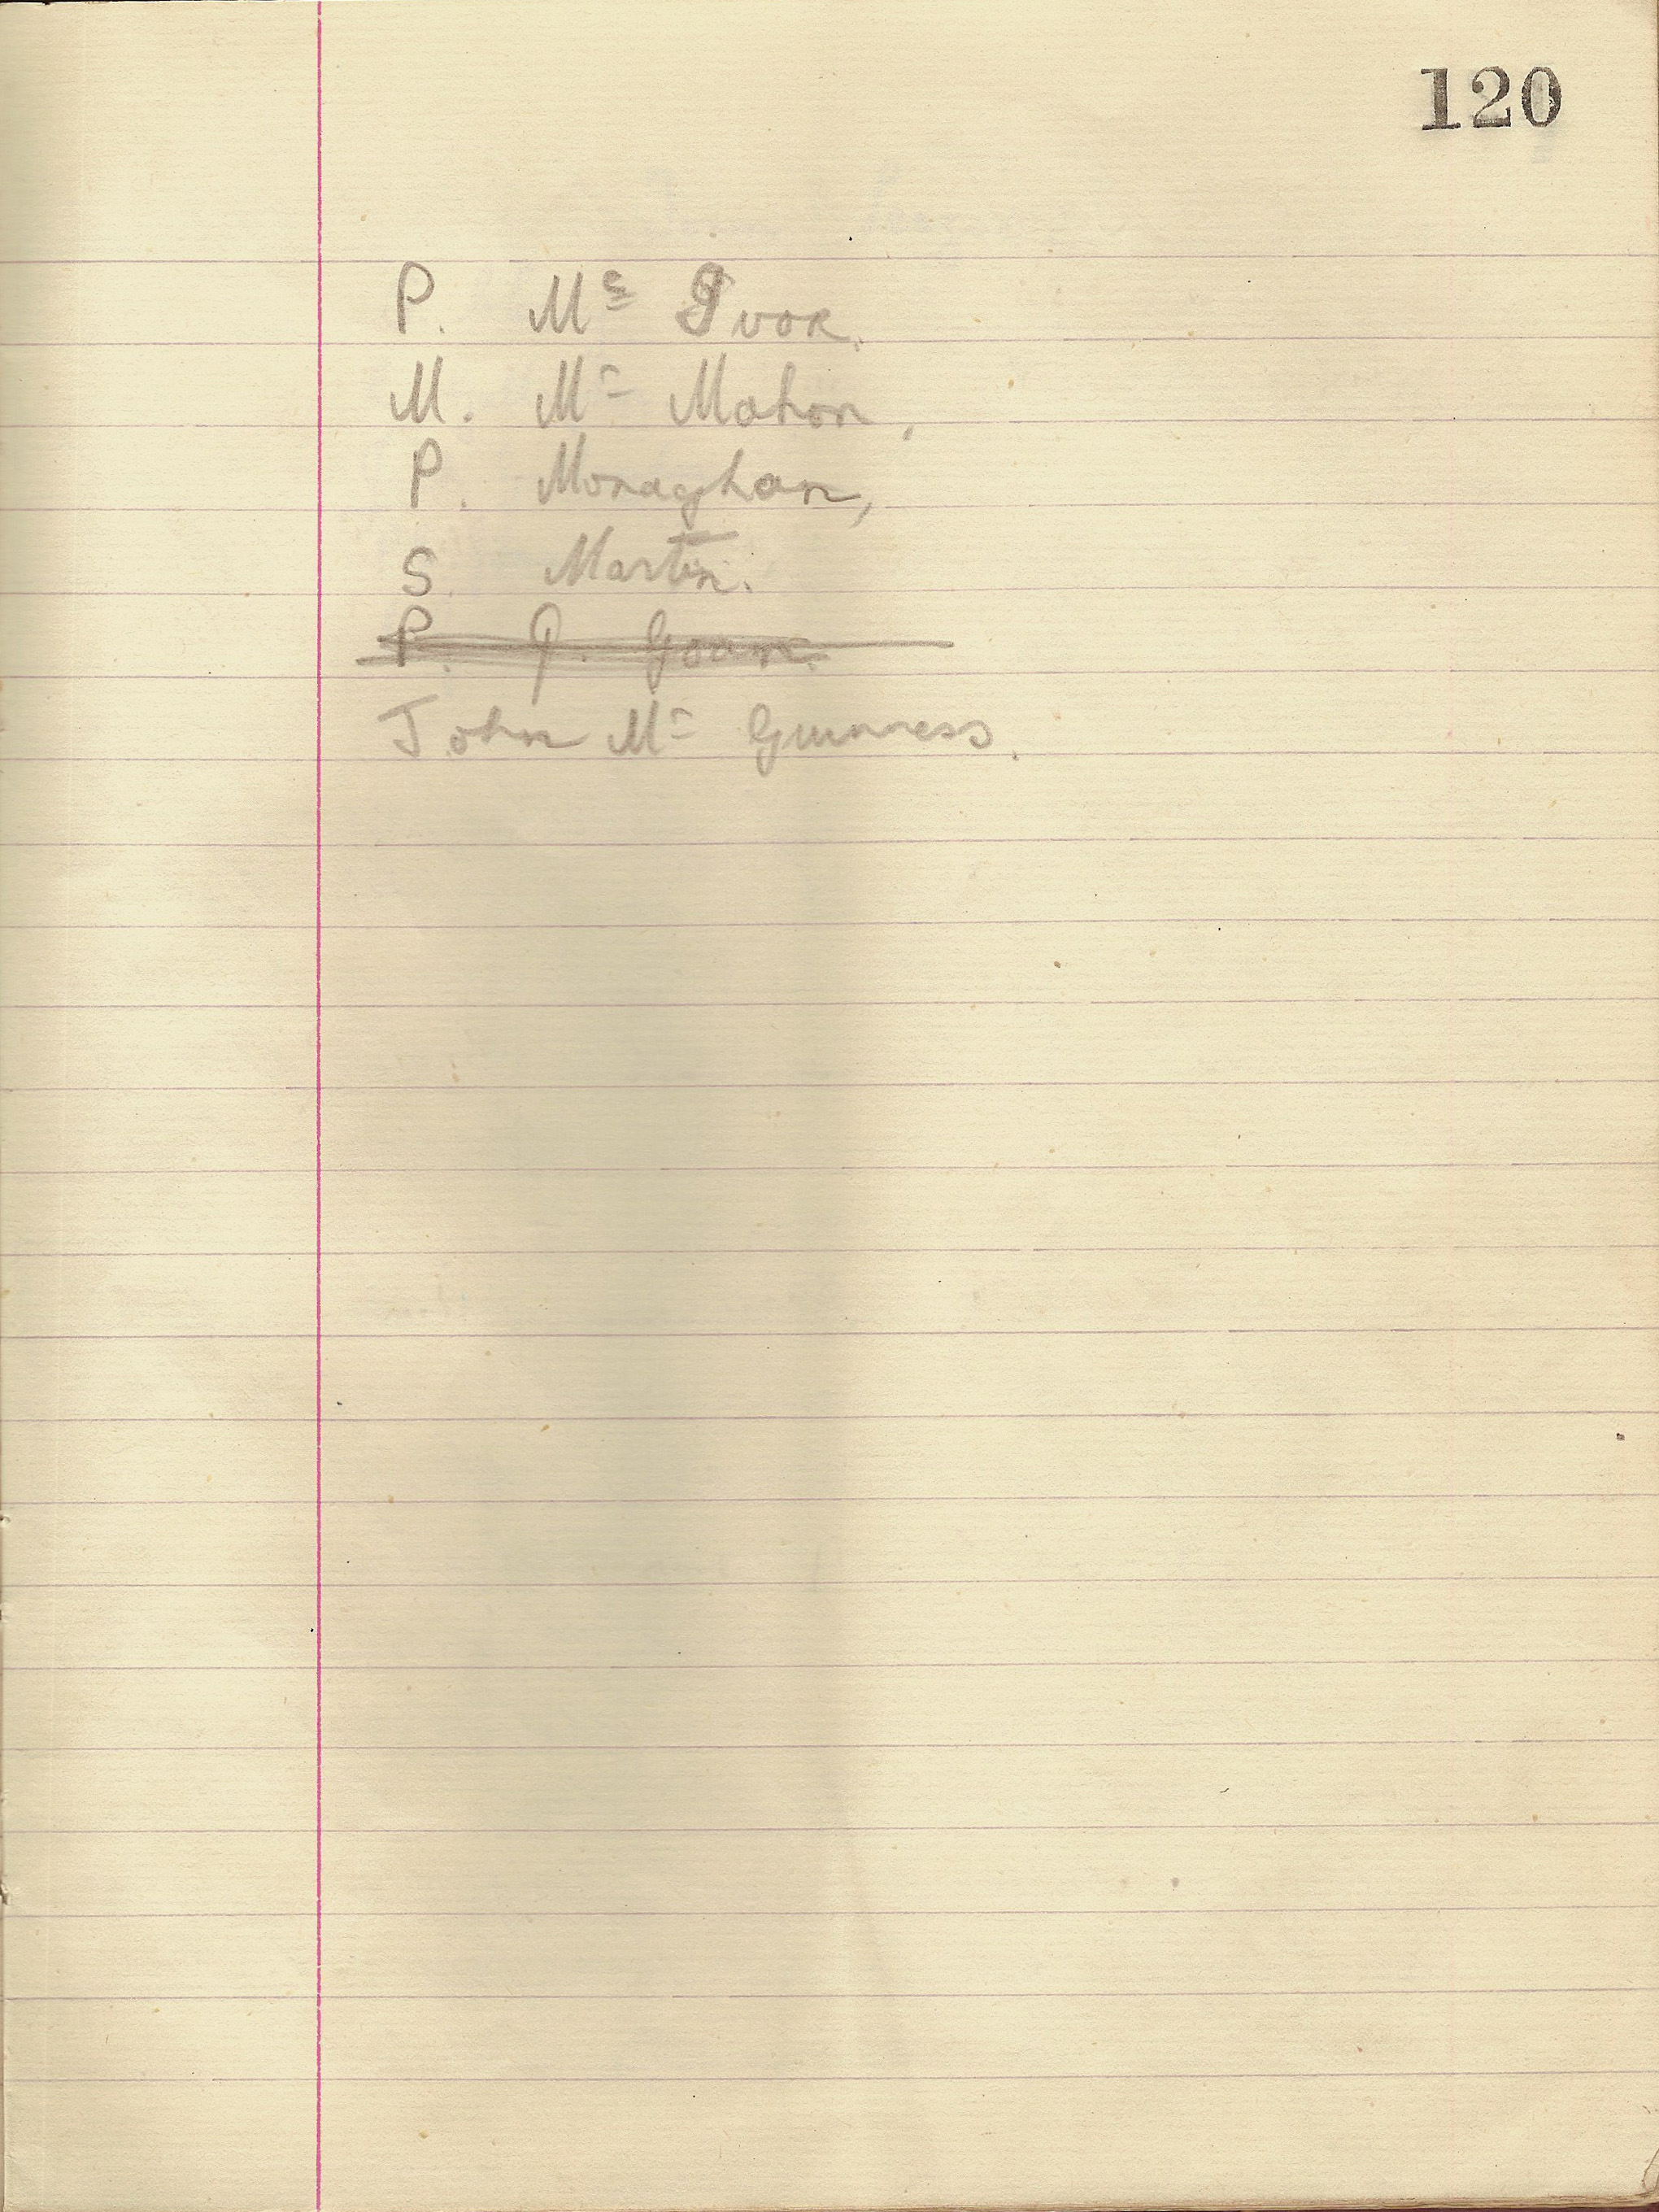 120
P. Mc Ivor.
M. Mc Mahon,
P. Monaghan,
S. Martin.
P. J.
John Mc Guinness.